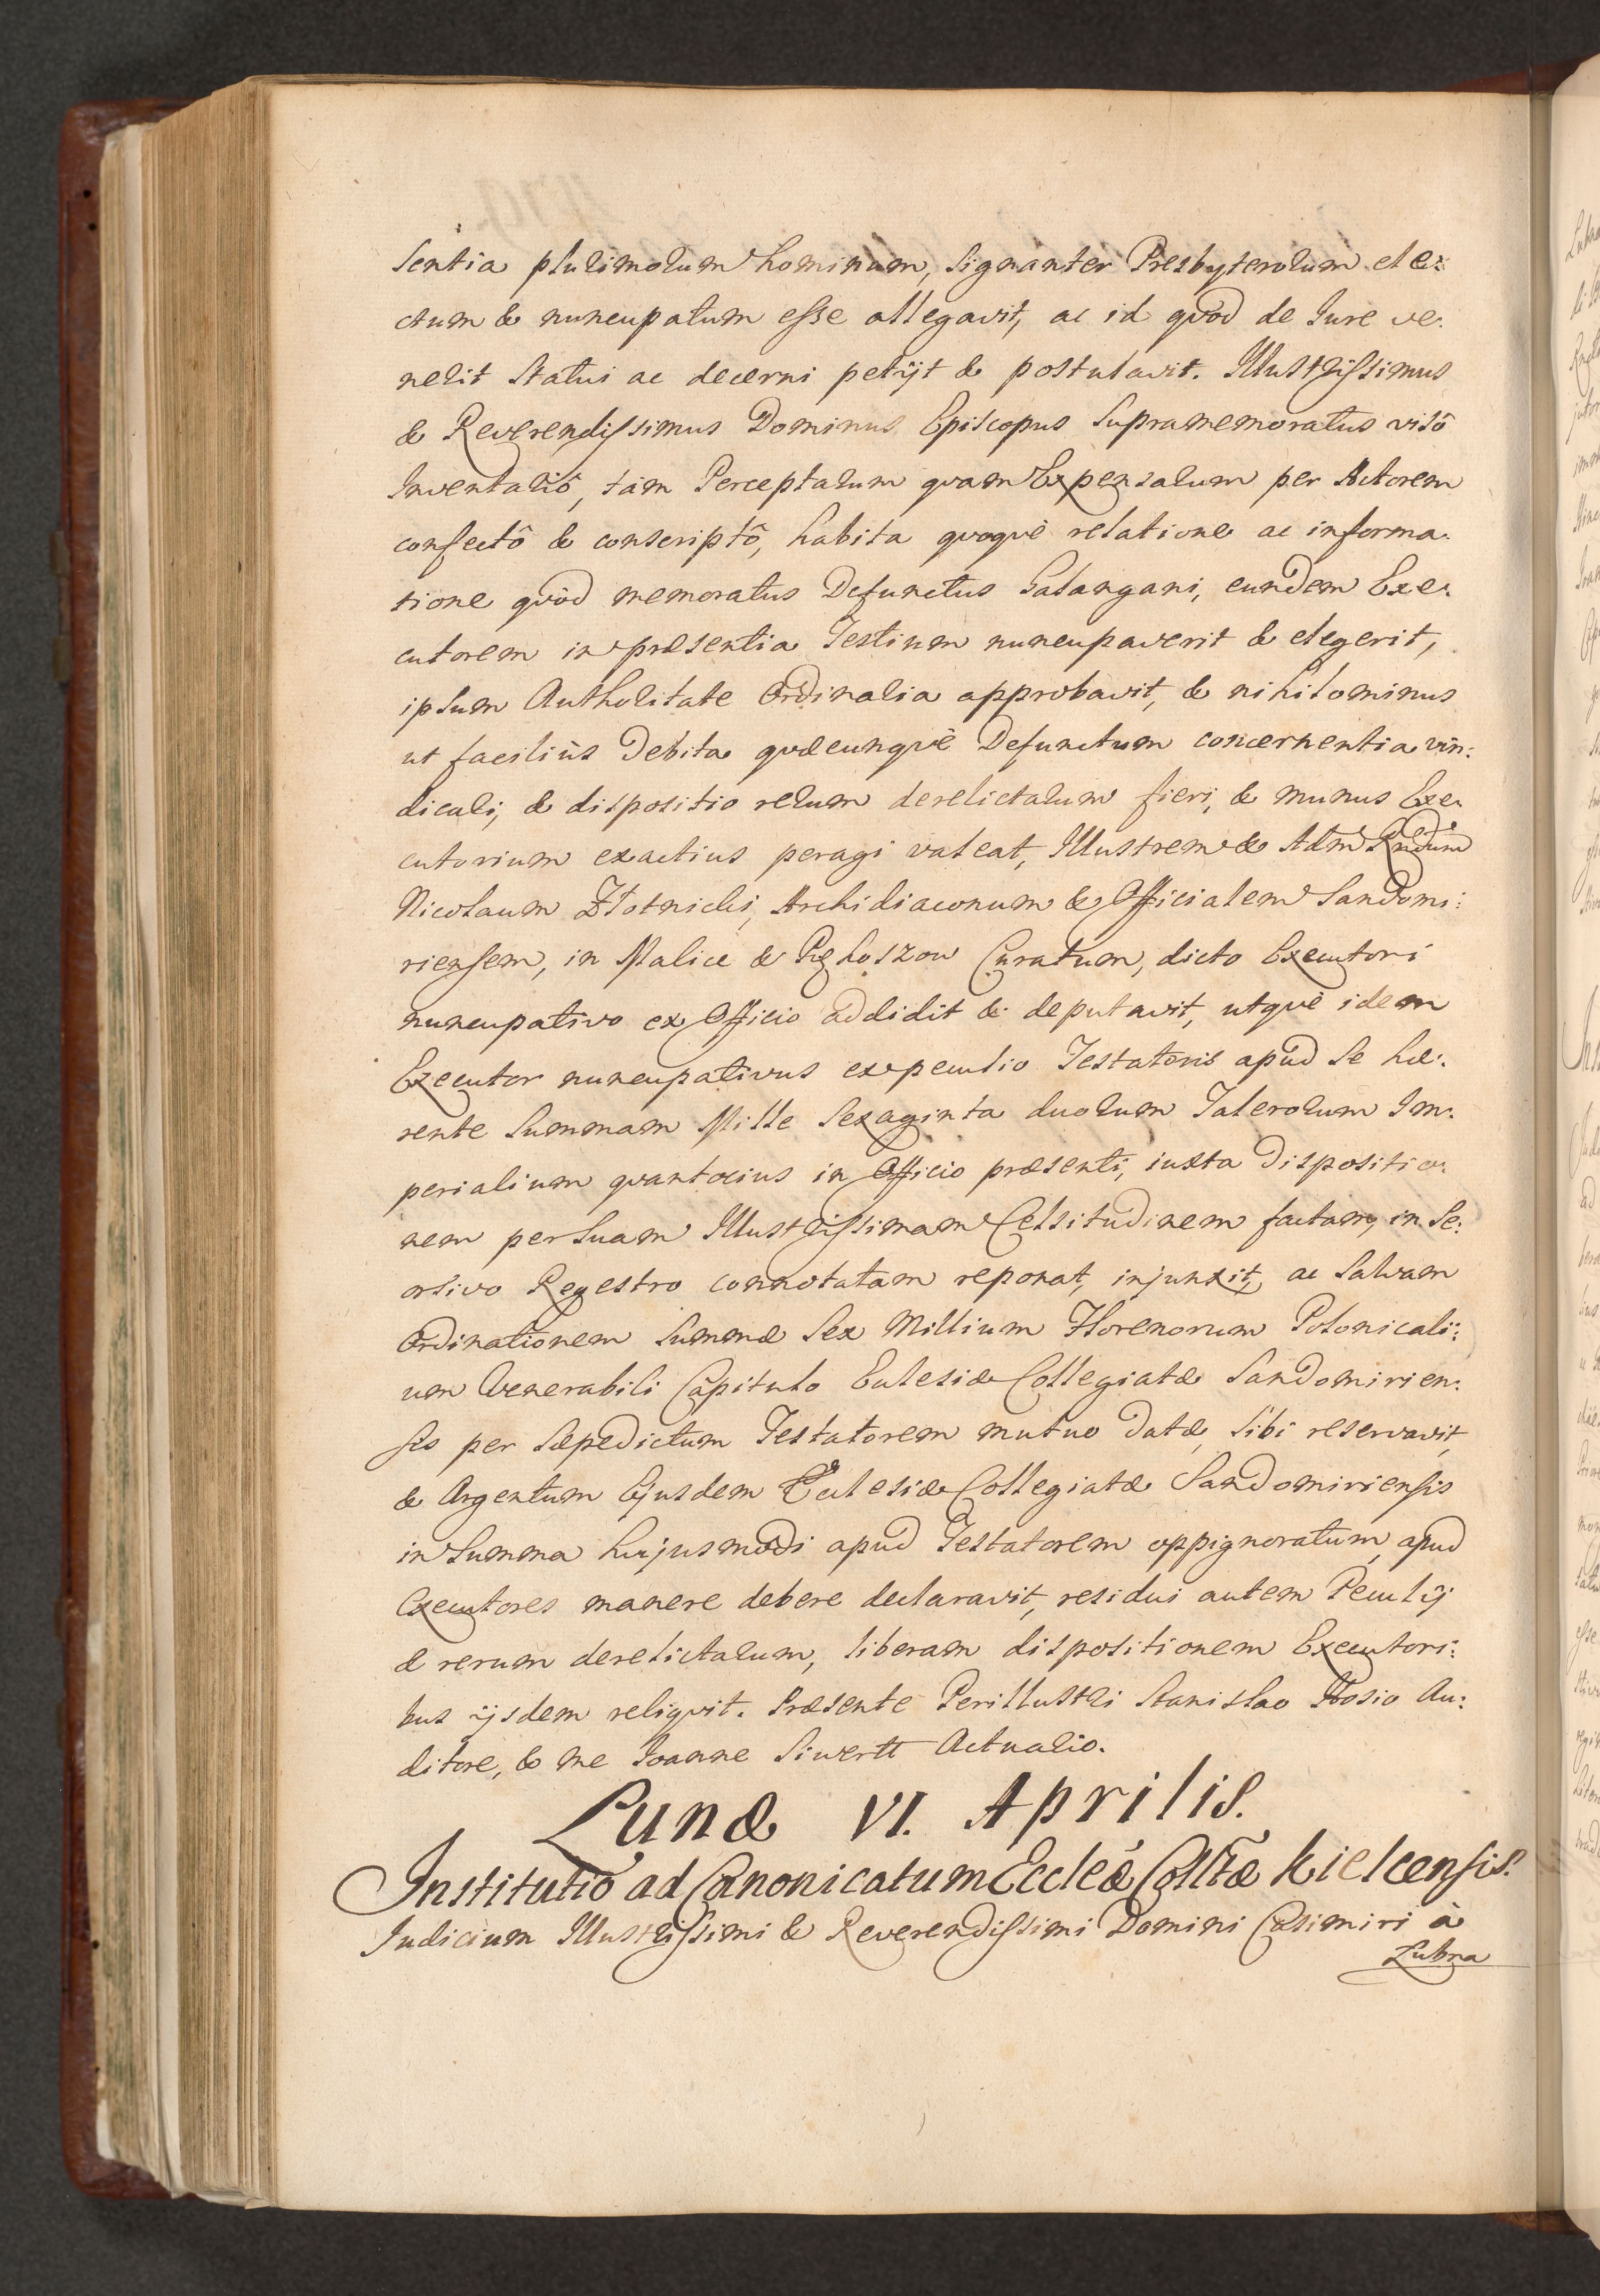 sentia plurimorum hominum, signanter Presbyterorum ele:
ctum & nuncupatum esse allegavit, ac id quòd de Iure ve:
nerit statui ac decerni petijt & postulavit. Illustrissimus
& Reverendissimus Dominus Episcopus supramemoratus visô
Inventariô, tàm Perceptarum quam Expensarum per Actorem
confectô & conscriptô, habita quoquè relatione ac informa:
tione quòd memoratus Defunctus Galangani, eundem Exe:
cutorem in præsentia Testium nuncupaverit & elegerit,
ipsum Authoritate Ordinaria approbavit, & nihilominus
ut faciliùs Debita quæcunquè Defunctum concernentia vin:
dicari, & dispositio rerum derelictarum fieri, & munus Exe:
cutorium exactius peragi valeat, Illustrem & Adm Rndum
Nicolaum Złotnicki, Archidiaconum & Officialem Sandomi:
riensem, in Malice & Pęhoszow Curatum, dicto Executori
nuncupativo ex Officio addidit & deputavit, utquè idem
Executor nuncupativus ex peculio Testatoris apud se hæ:
rente Summam Mille Sexaginta duorum Talerorum Im:
perialium quantocius in Officio præsenti, iuxta Dispositio:
nem per Suam Illustrissimam Celsitudinem factam, in se:
orsivo Regestro connotatam reponat, injunxit, ac salvam
Ordinationem Summæ Sex Millium Florenorum Polonicali:
um Venerabili Capitulo Eclesiæ Collegiatæ Sandomirien:
sis per sæpedictum Testatorem mutuo datæ, sibi reservavit,
& Argentum Ejusdem Eclesiæ Collegiatæ Sandomiriensis
in Summa hujusmodi apud Testatorem oppignoratum, apud
Executores manere debere declaravit, residui autem Peculij
& rerum derelictarum, liberam dispositionem Executori:
bus ijsdem reliquit. Præsente Perillustri Stanislao Hosio Au:
ditore, & me Ioanne Siwertt Actuario.
Lunæ VI. Aprilis.
Institutio ad Canonicatum Eccleæ Colltæ Kielcensis.
Iudicium Illustrissimi & Reverendissimi Domini Casimiri à
Lubna